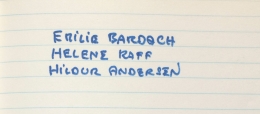 EMILIE BARDACH
HELENE RAFF
HILDUR ANDERSEN